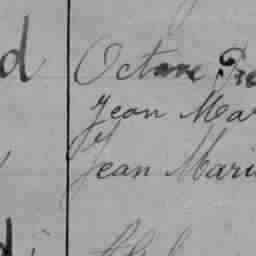 d Octave Pre
Jean Mar
Jean Mari